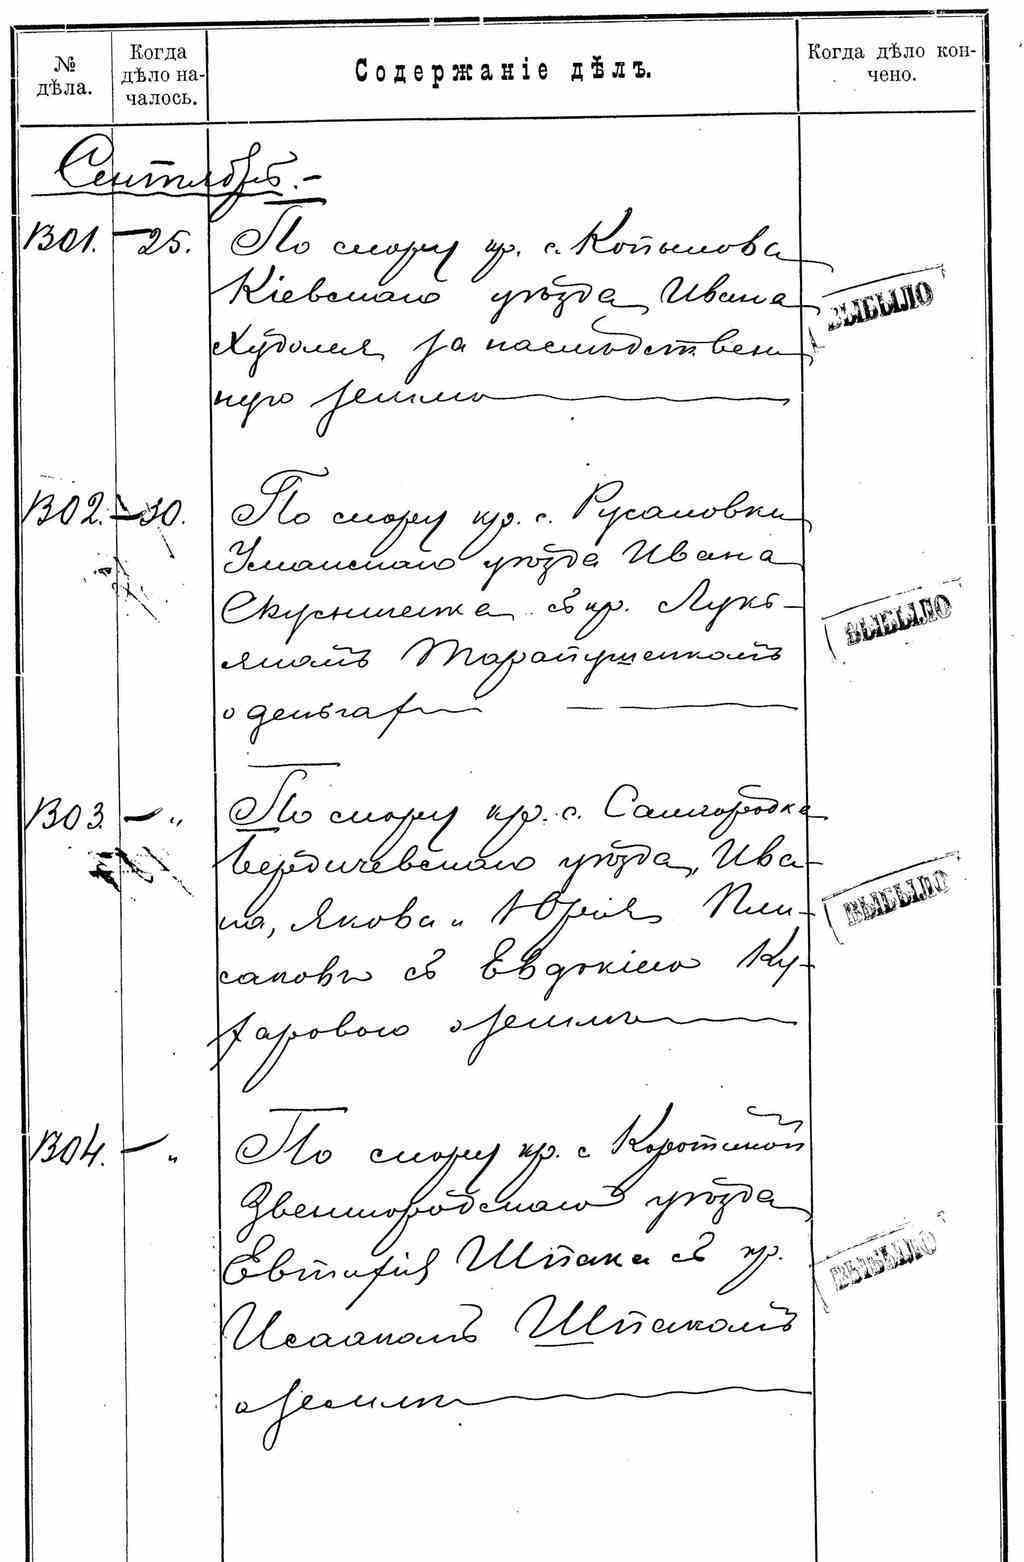 № дѣла.
Когда дѣло на-
чалось.
Содержаніе дѣлъ.
Когда дѣло кон-
чено.
Сентябрь.-
1301. - 25. По спору кр. с. Копылова
Кіевскаго уѣзда Ивана
Худолея за наслѣдствен
ную землю
ВЫБЫЛО
1302. - 30. По спору кр. с. Русаловки
Уманскаго уѣзда Ивана
съ кр. Лукь-
яномъ Тарапушенкомъ
о деньгах
ВЫБЫЛО
1303. - " По спору кр. с. Самгородка
Бердичевскаго уѣзда, Ива-
на, Якова и Юрія Пли-
саковъ съ Евдокіею Ку-
харовою о землѣ
ВЫБЫЛО
1304. - " По спору кр. с.
Звенигородскаго уѣзда
Евтихія Шпака съ кр.
Исаакомъ Шпакомъ
о землѣ
ВЫБЫЛО